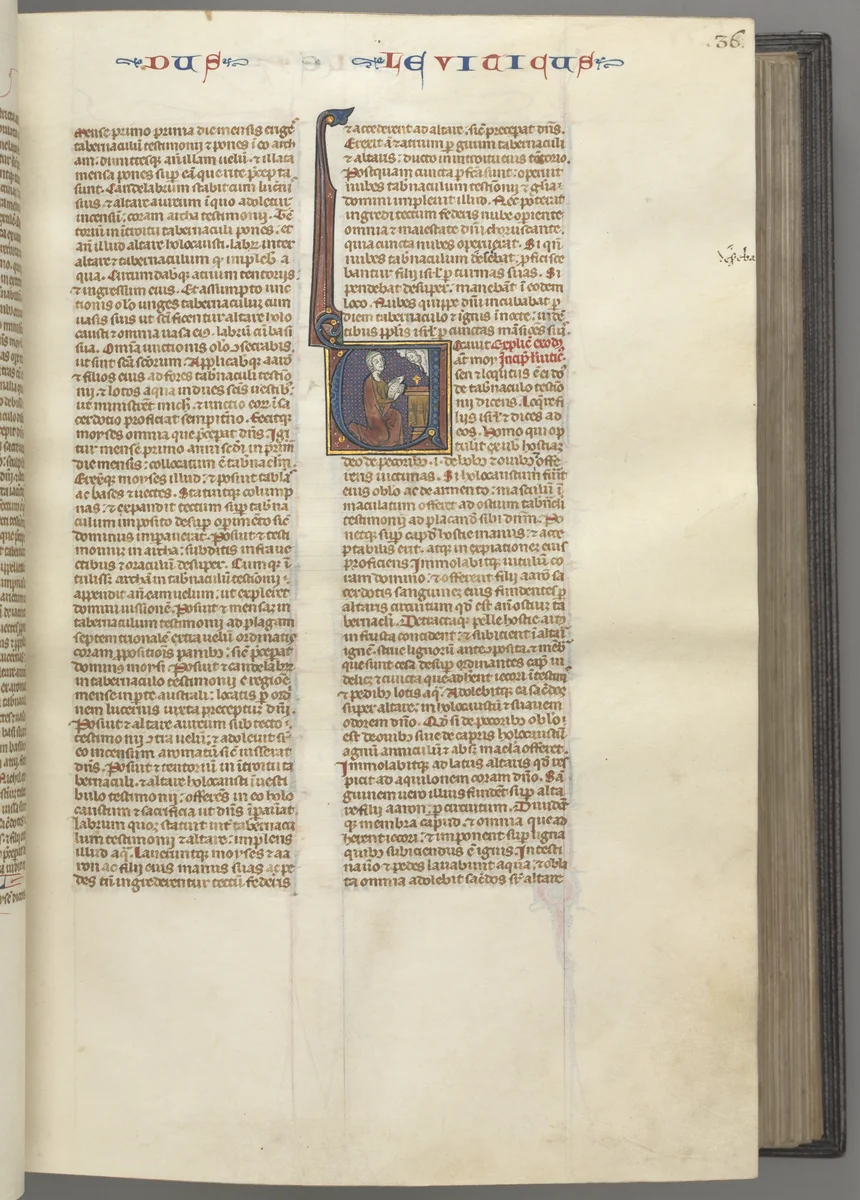 DUS LEVITICUS
36
Mense primo prima die mensis eriges
tabernaculū testimonii ⁊ pones ī eo arch
am: dimittesque añ illam uelū. ⁊ illata
mensa pones sup̄ eā que rite p̄cepta
sunt. Candelabrum stabit cum lucer̄
suis. ⁊ altare aureum ī quo adoletur
incensū: coram archa testimonii. Tē
torium in ītroitu tabernaculi pones. et
añ illud altare holocausti. labr̄ inter
altare ⁊ tabernaculum qͥ implebꝭ a
qua. Circumdabꝗ atrium tentoriis:
⁊ ingressum eius. Et assumpto unc
tionis oleo unges tabernaculum cum
uasis suis ut scīficentur altare holo
causti ⁊ omnia uasa eiꝰ. labrū cū basi
sua. Omīa unctionis oleo ɔsecrabis.
ut sint scā scōrum. Applicabꝗ aarō
⁊ filios eius ad fores tabnaculi testīo
nii. ⁊ lotos aqua indues scīs uestibꝫ:
ut ministrēt michi. ⁊ unctio eoꝝ ī sa
cerdotio proficiat sempitn̄o. Fecitꝗ
moyses omnia que p̄cepat dn̄s. Igi
tur mense primo anni scd̄i in prima
die mensis: collocatum ē tabnaclm̄.
Erexitꝗ moyses illud: ⁊ posuit tabla
ac bases ⁊ uectes. Statuitꝗ colump
nas: ⁊ expandit tectum sup̄ tabna
culum imposito desup̄ opim̄eto sic̄
dominus imp̄auerat. Posuit ⁊ testi
monium in archa: subditis infra uec
tibus ⁊ oraculū desuper. Cumꝗ ī
tulisset archā in tabnaculū testīonii.
appendit añ eam uelum: ut expleret
domini iussionē. Posuit ⁊ mensam in
tabernaculum testimonii ad plagam
septemtrionale extra uelū ordinatis
coram ppositionis panibꝫ: sic̄ p̄cepat
dominus moysi. Posuit ⁊ candelabꝝ
in tabernaculo testimonii e regiōe
mense in p̄te australi: locatis p̱ ordi
nem lucernis iuxta preceptum dn̄i.
Posuit ⁊ altare aureum sub tecto
testimonii ɔtra uelū: ⁊ adoleuit sr̄
eo incensum aromatū sic̄ iusserat
dn̄s. Posuit ⁊ tentoriū in ītroitu ta
bernaculi. ⁊ altare holocausti ī uesti
bulo testimonii: offerēs in eo holo
caustum ⁊ sacrificia ut dn̄s īpaūat.
Labrum quoꝗ statuit int̄ tabernacu
lum testimonii ⁊ altare: implens
illud aqͣ. Laueruntꝗ moyses ⁊ aa
ron ac filii eius manus suas ac pe
des cū ingrederentur tectū federis
⁊ accederent ad altare: sic̄ precepat dn̄s.
Erexit ⁊ atrium p̱ girum tabernaculi
⁊ altaris: ducto in introitu eius tētorio.
Postquam cuncta p̄fcā sunt: operuit
nubes tabnaculum testīonii ⁊ gl̄ia
domini impleuit illud. Nec poterat
ingredi tectum federis nube opiente
omnia ⁊ maiestate dn̄i choruscante.
quia cuncta nubes operuerat. Si qn̄
nubes tabnaculum desebat: pficisce
bantur filii isr̄l p̱ turmas suas. Si
pendebat desuper: manebāt ī eodem
loco. Nubes quippe dn̄i incubabat p̱
diem tabernaculo ⁊ ignis in nocte: uidē
tibus pplis isr̄l p̱ cunctas māsiōes suas.
Ocauit Explic̄ exodꝰ
aūt moy Incip̄ leuitic
sen ⁊ locutus ē ei dn̄s
de tabnaculo testīo
nii dicens. Loq̄re fi
liis isr̄l ⁊ dices ad
eos. Homo qui op
tulit ex uob̄ hostiā
deo de pecoribꝫ .i. de bobꝫ ⁊ ouibꝫ offe
rens uictimas. Si holocaustum fuit
eius oblō ac de armento: masculū ī
maculatum offeret ad ostium tabn̄cli
testimonii ad placand̄ sibi dn̄m. Po
netꝗ sup̄ cap̄d hostie manus: ⁊ acce
ptabilis erit. atꝗ in expiationē eius
proficiens. Immolabitꝗ uitulū co
ram domino: ⁊ offerent filii aarō sa
cerdotis sanguinē eius fundentes p̱
altaris circuitum qd̄ est añ ostiū ta
bernacli. Detractaꝗ pelle hostie artꝰ
in frusta concident: ⁊ subicient ī altari
ignē. strue lignorū ante ɔposita. ⁊ mēb̄
que sunt cesa desup̄ ordinantes cap̄ ui
delicꝫ ⁊ cuncta que adherēt iecori ītestinis
⁊ pedibꝫ lotis aqͣ. Adolebitꝗ ea sacd̄os
super altare: in holocaustū ⁊ suauem
odorem dn̄o. Qd̄ si de pecoribꝫ oblō
est de ouibꝫ siue de capris holocaustū
agnū anniculū ⁊ absꝗ macla offeret.
Immolabitꝗ ad latus altaris qd̄ res
picit ad aquilonem coram dn̄o. Sā
guinem uero illius fundēt sup̄ alta
re filii aaron: p̱ circuitum. Diuidētꝗ
membra capud. ⁊ omnia que ad
herent iecori: ⁊ imponent sup̄ ligna
quibꝫ subiciendus ē ignis. Intesti
na ūo ⁊ pedes lauabunt aqua. ⁊ obla
ta omnia adolebit sacd̄os sr̄ altare